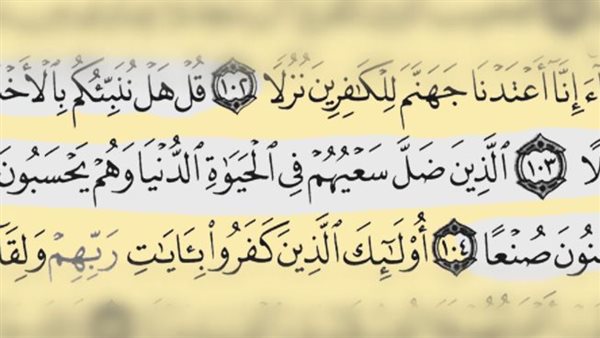 ءَ إِنَّآ أَعۡتَدۡنَا جَهَنَّمَ لِلۡكَٰفِرِينَ نُزُلٗا ١٠٢ قُلۡ هَلۡ نُنَبِّئُكُم بِٱلۡأَخۡ
لًا ١٠٣ ٱلَّذِينَ ضَلَّ سَعۡيُهُمۡ فِي ٱلۡحَيَوٰةِ ٱلدُّنۡيَا وَهُمۡ يَحۡسَبُونَ
نُونَ صُنۡعًا ١٠٤ أُوْلَٰٓئِكَ ٱلَّذِينَ كَفَرُواْ بِـَٔايَٰتِ رَبِّهِمۡ وَلِقَا